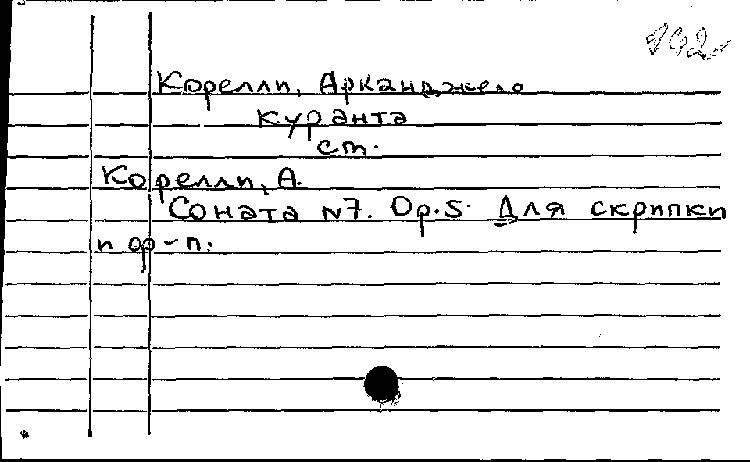 192
Корелли, Арканджело
куранта
ст.
Корелли, А.
Соната N7. Op.5. Для скрипки
и ф-п.